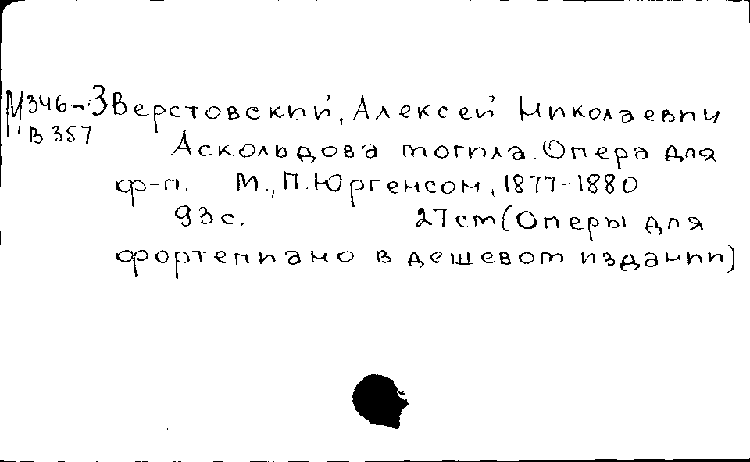 М346-3 Верстовский, Алексей Николаевич
В 357
Аскольдова могила. Опера для
ф-п. М., П. Юргенсон, 1877-1880
93 с. 27 cm (Оперы для
фортепиано в дешевом издании)